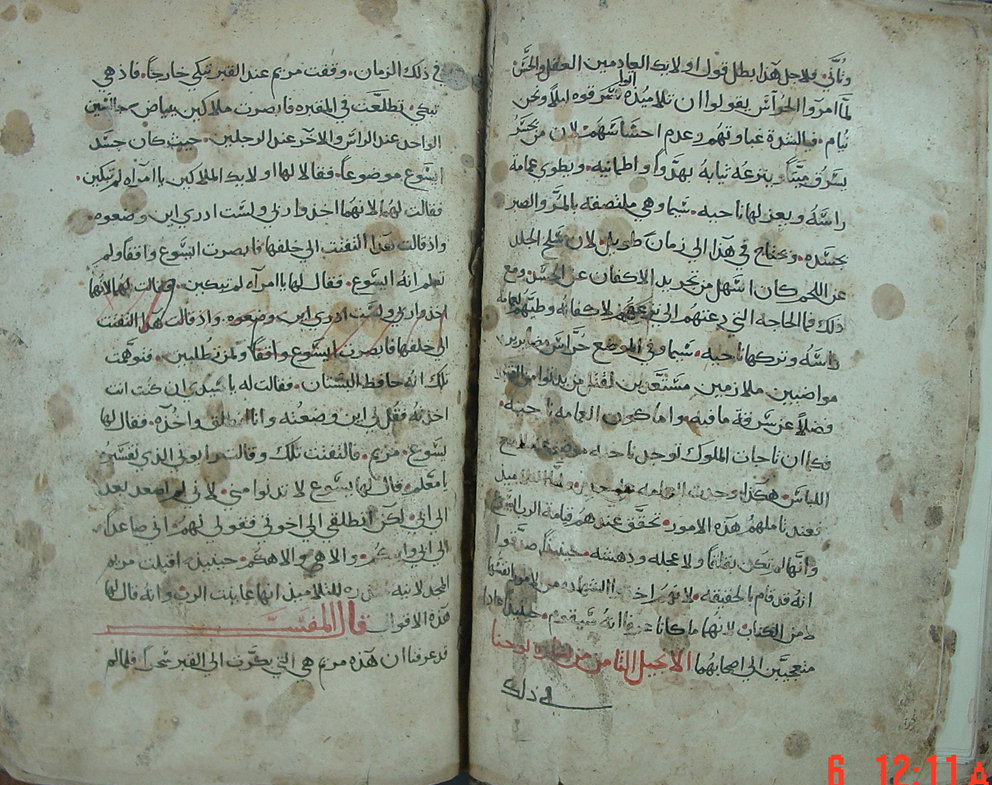 وتأنّي. فلاجل هذا بطل قول اولايك العادمين العقل والحسّ
لما امروا الحراس يقولوا ان تلاميذه اتوا سرقوه ليلاً ونحن
نيام. فالشدة غباوتهم وعدم احساسهم لان من يجسر
يسرق ميتاً وينزعه ثيابه بهدوا واطمانيه. ويطوي عمامة
راسه ويعزلها ناحيه. سيما وهي ملتصقه بالمر والصبر
بجسده. ويحتاج في هذا الى زمان طويل. لان سلخ الجلد
عن اللحم كان اسهل من تجريد الاكفان عن الجسد. ومع
ذلك فما الحاجه التي دعتهم الى نزعهم لاكفانه وطيهم لعمامة
راسه وتركها ناحيه. سيما وفي الموضع حراس
مواضبين ملازمين مستعدين لقتل من يدنوا من القبر
فضلاً عن سرقة ما فيه. واما كون العمامه ناحيه.
فكما ان تاجات الملوك توجد ناحيه
اللباس. هكذا وجدت العمامه
فعند تاملهم هذه الامور. تحقق عندهم قيامة الرب
وانها لم تكن ولا عجله ودهشه. حينيذ صدقوا
انه قد قام بالحقيقه.
من الكتاب. لانهما ما كانا عرفا انه يقوم. حينيذ عادا
متعجبين الى اصحابهما الانجيل الثامن من يوحنا
في ذلك
في ذلك الزمان. وقفت مريم عند القبر تبكي خارجاً. فاذ هي
تبكي. تطلعت في المقبره فابصرت ملاكين ببياض جالسين
الواحد عند الراس والاخر عند الرجلين. حيث كان جسد
ايسوع موضوعاً. فقالا لها اولايك الملاكين يا امراه لم تبكين.
فقالت لهما لانهما اخذوا ربي ولست ادري اين وضعوه
واذ قالت هذا التفتت الى خلفها فابصرت ايسوع واقفا ولم
تعلم انه ايسوع. فقال لها يا امراه لم تبكين. فقالت لهما لانهما
اخذوا ربي ولست ادري اين وضعوه. واذ قالت هذا التفتت
الى خلفها فابصرت ايسوع واقفاً ولمن تطلبين. فتوهمت
تلك انه حافظ البستان. فقالت له يا سيدي ان كنت انت
اخذته فقل لي اين وضعته وانا انطلق واخذه. فقال لها
يسوع. مريم. فالتفتت تلك وقالت رابوني الذي تفسيره
يا معلم. قال لها يسوع لا تدنوا مني. لاني لم اصعد بعد
الى ابي. لكن انطلقي الى اخوتي فقولي لهم. اني صاعد
الى ابي وابيكم. والاهي والاهكم. حينيذ اقبلت مريم
المجدلانيه مبشره للتلاميذ انها عاينت الرب وانه قال لها
هذه الاقوال قال المفسر
قد عرفنا ان هذه مريم هي التي بكرت الى القبر سحراً فلما لم
6 12:11